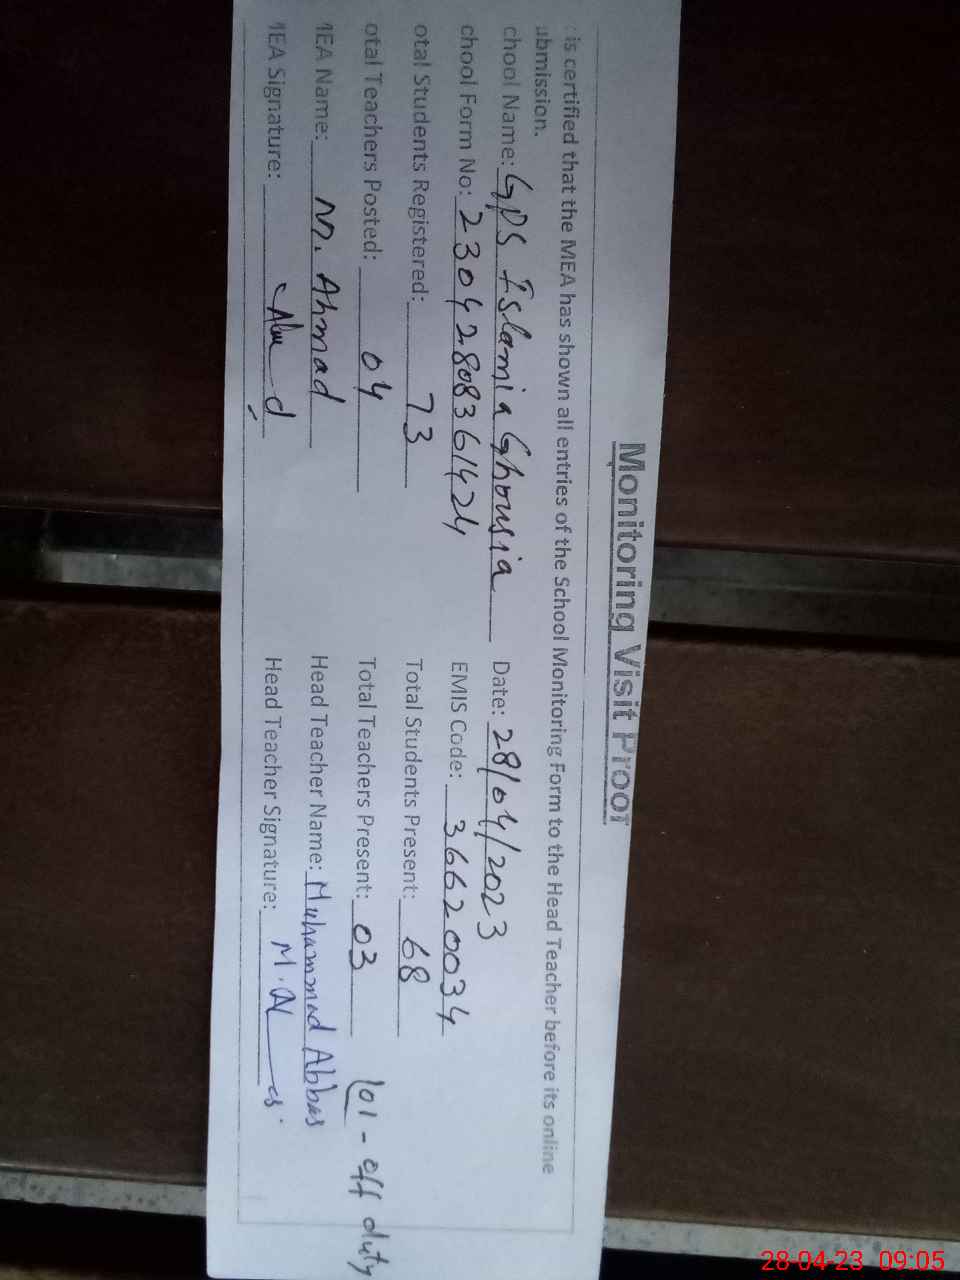 Monitoring Visit Proof
is certified that the MEA has shown all entries of the School Monitoring Form to the Head Teacher before its online
ubmission.
chool Name: GPS Islamia Ghousia Date: 28/04/2023
chool Form No: 23042808361424 EMIS Code: 36620034
otal Students Registered: 73 Total Students Present: 68
otal Teachers Posted: 04 Total Teachers Present: 03 01 - off duty
MEA Name: M. Ahmad Head Teacher Name: Muhammad Abbas
MEA Signature: Head Teacher Signature:
28-04-23 09:05